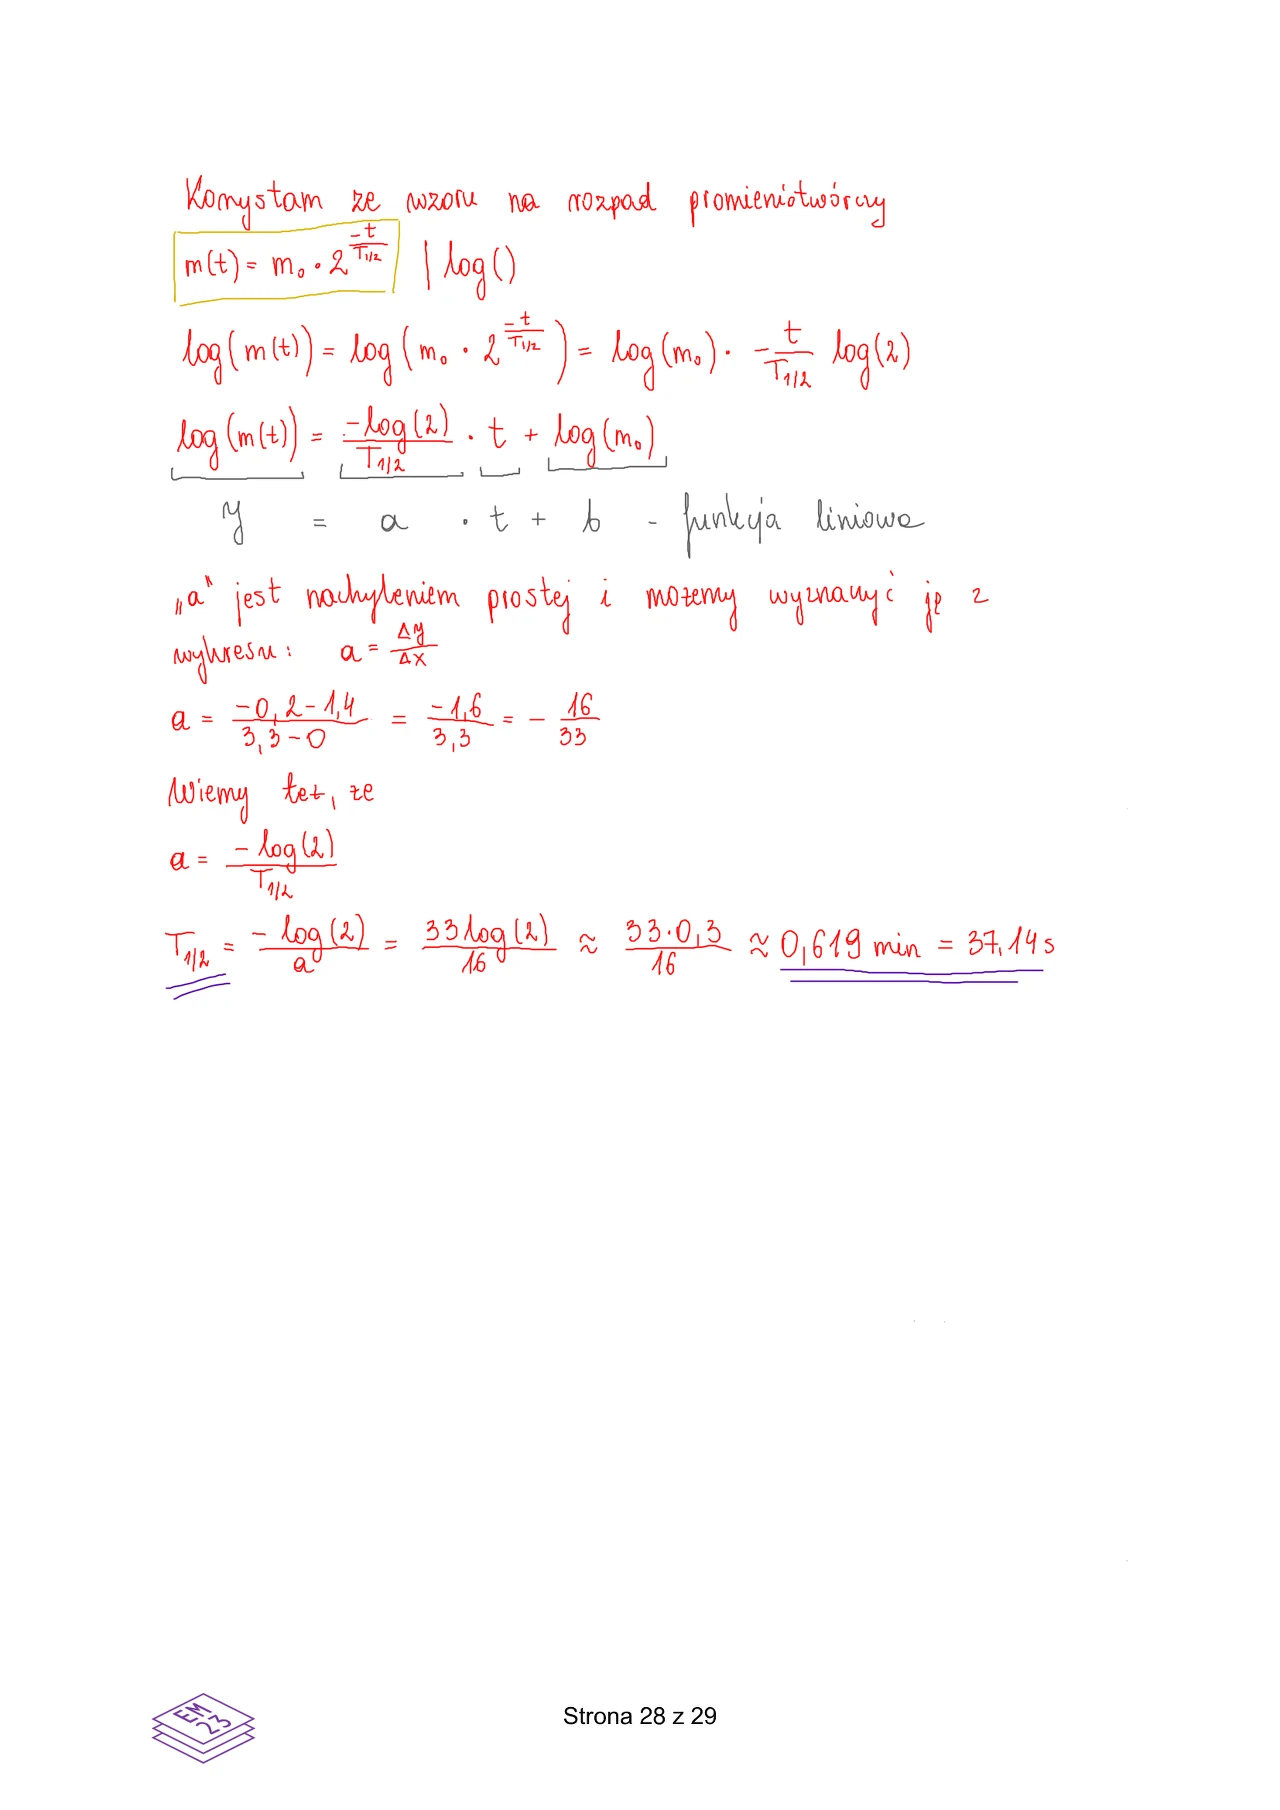 Korzystam ze wzoru na rozpad promieniotwórczy
m(t) = m₀ · 2^(-t/T1/2) | log()
log(m(t)) = log(m₀ · 2^(-t/T1/2)) = log(m₀) · -t/T1/2 log(2)
log(m(t)) = -log(2)/T1/2 · t + log(m₀)
y = a · t + b - funkcja liniowa
„a" jest nachyleniem prostej i możemy wyznaczyć ję z
wykresu: a = Δy/Δx
a = -0,2-1,4/3,3-0 = -1,6/3,3 = - 16/33
Wiemy też, że
a = -log(2)/T1/2
T1/2 = -log(2)/a = 33log(2)/16 ≈ 33·0,3/16 ≈ 0,619 min = 37,14s
EM
23
Strona 28 z 29